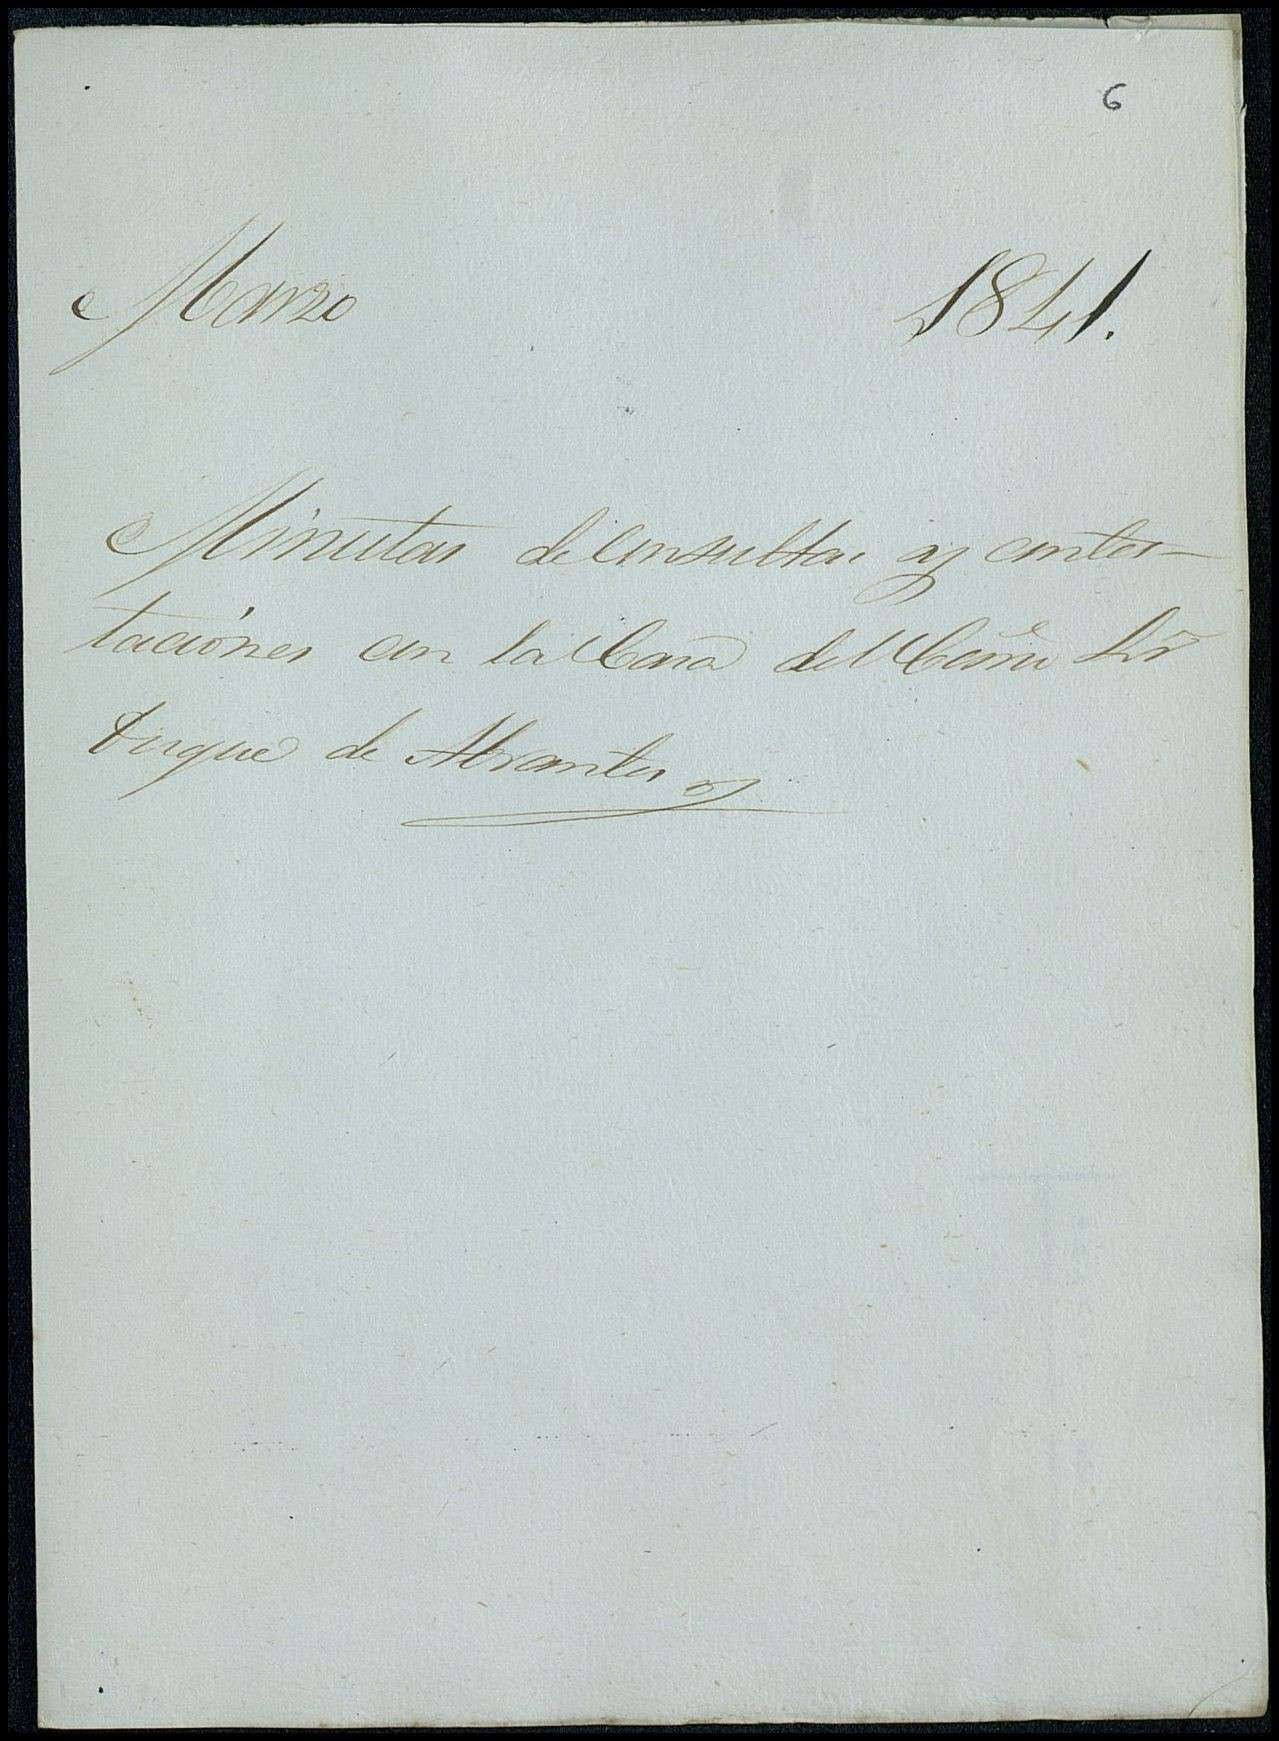 6
Marzo 1841.
Minutas de Consultas y contes-
taciones con la Casa del Excmo Sr
Duque de Abrantes